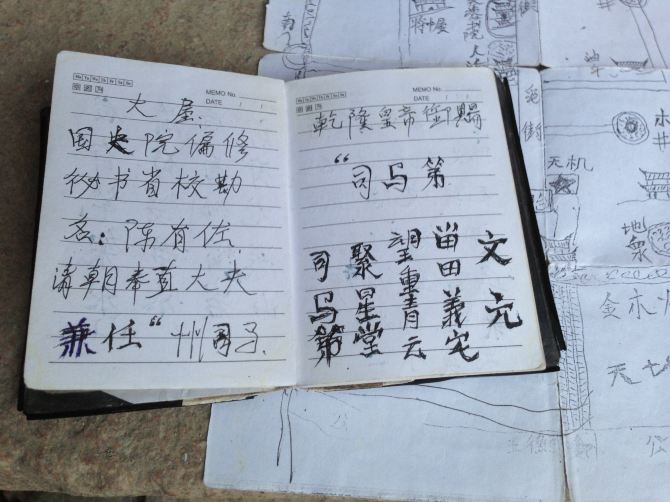 MEMO No.
DATE / /
大屋.
国史院偏修
秘书省校勘
名:陈有佐
清朝奉直大夫
兼任“州司子.
MEMO No.
DATE / /
乾隆皇帝御賜
“司马第
文元
甾田義宅
望重青云
聚星堂
司马第
南
井
街
井
天机
金木
天